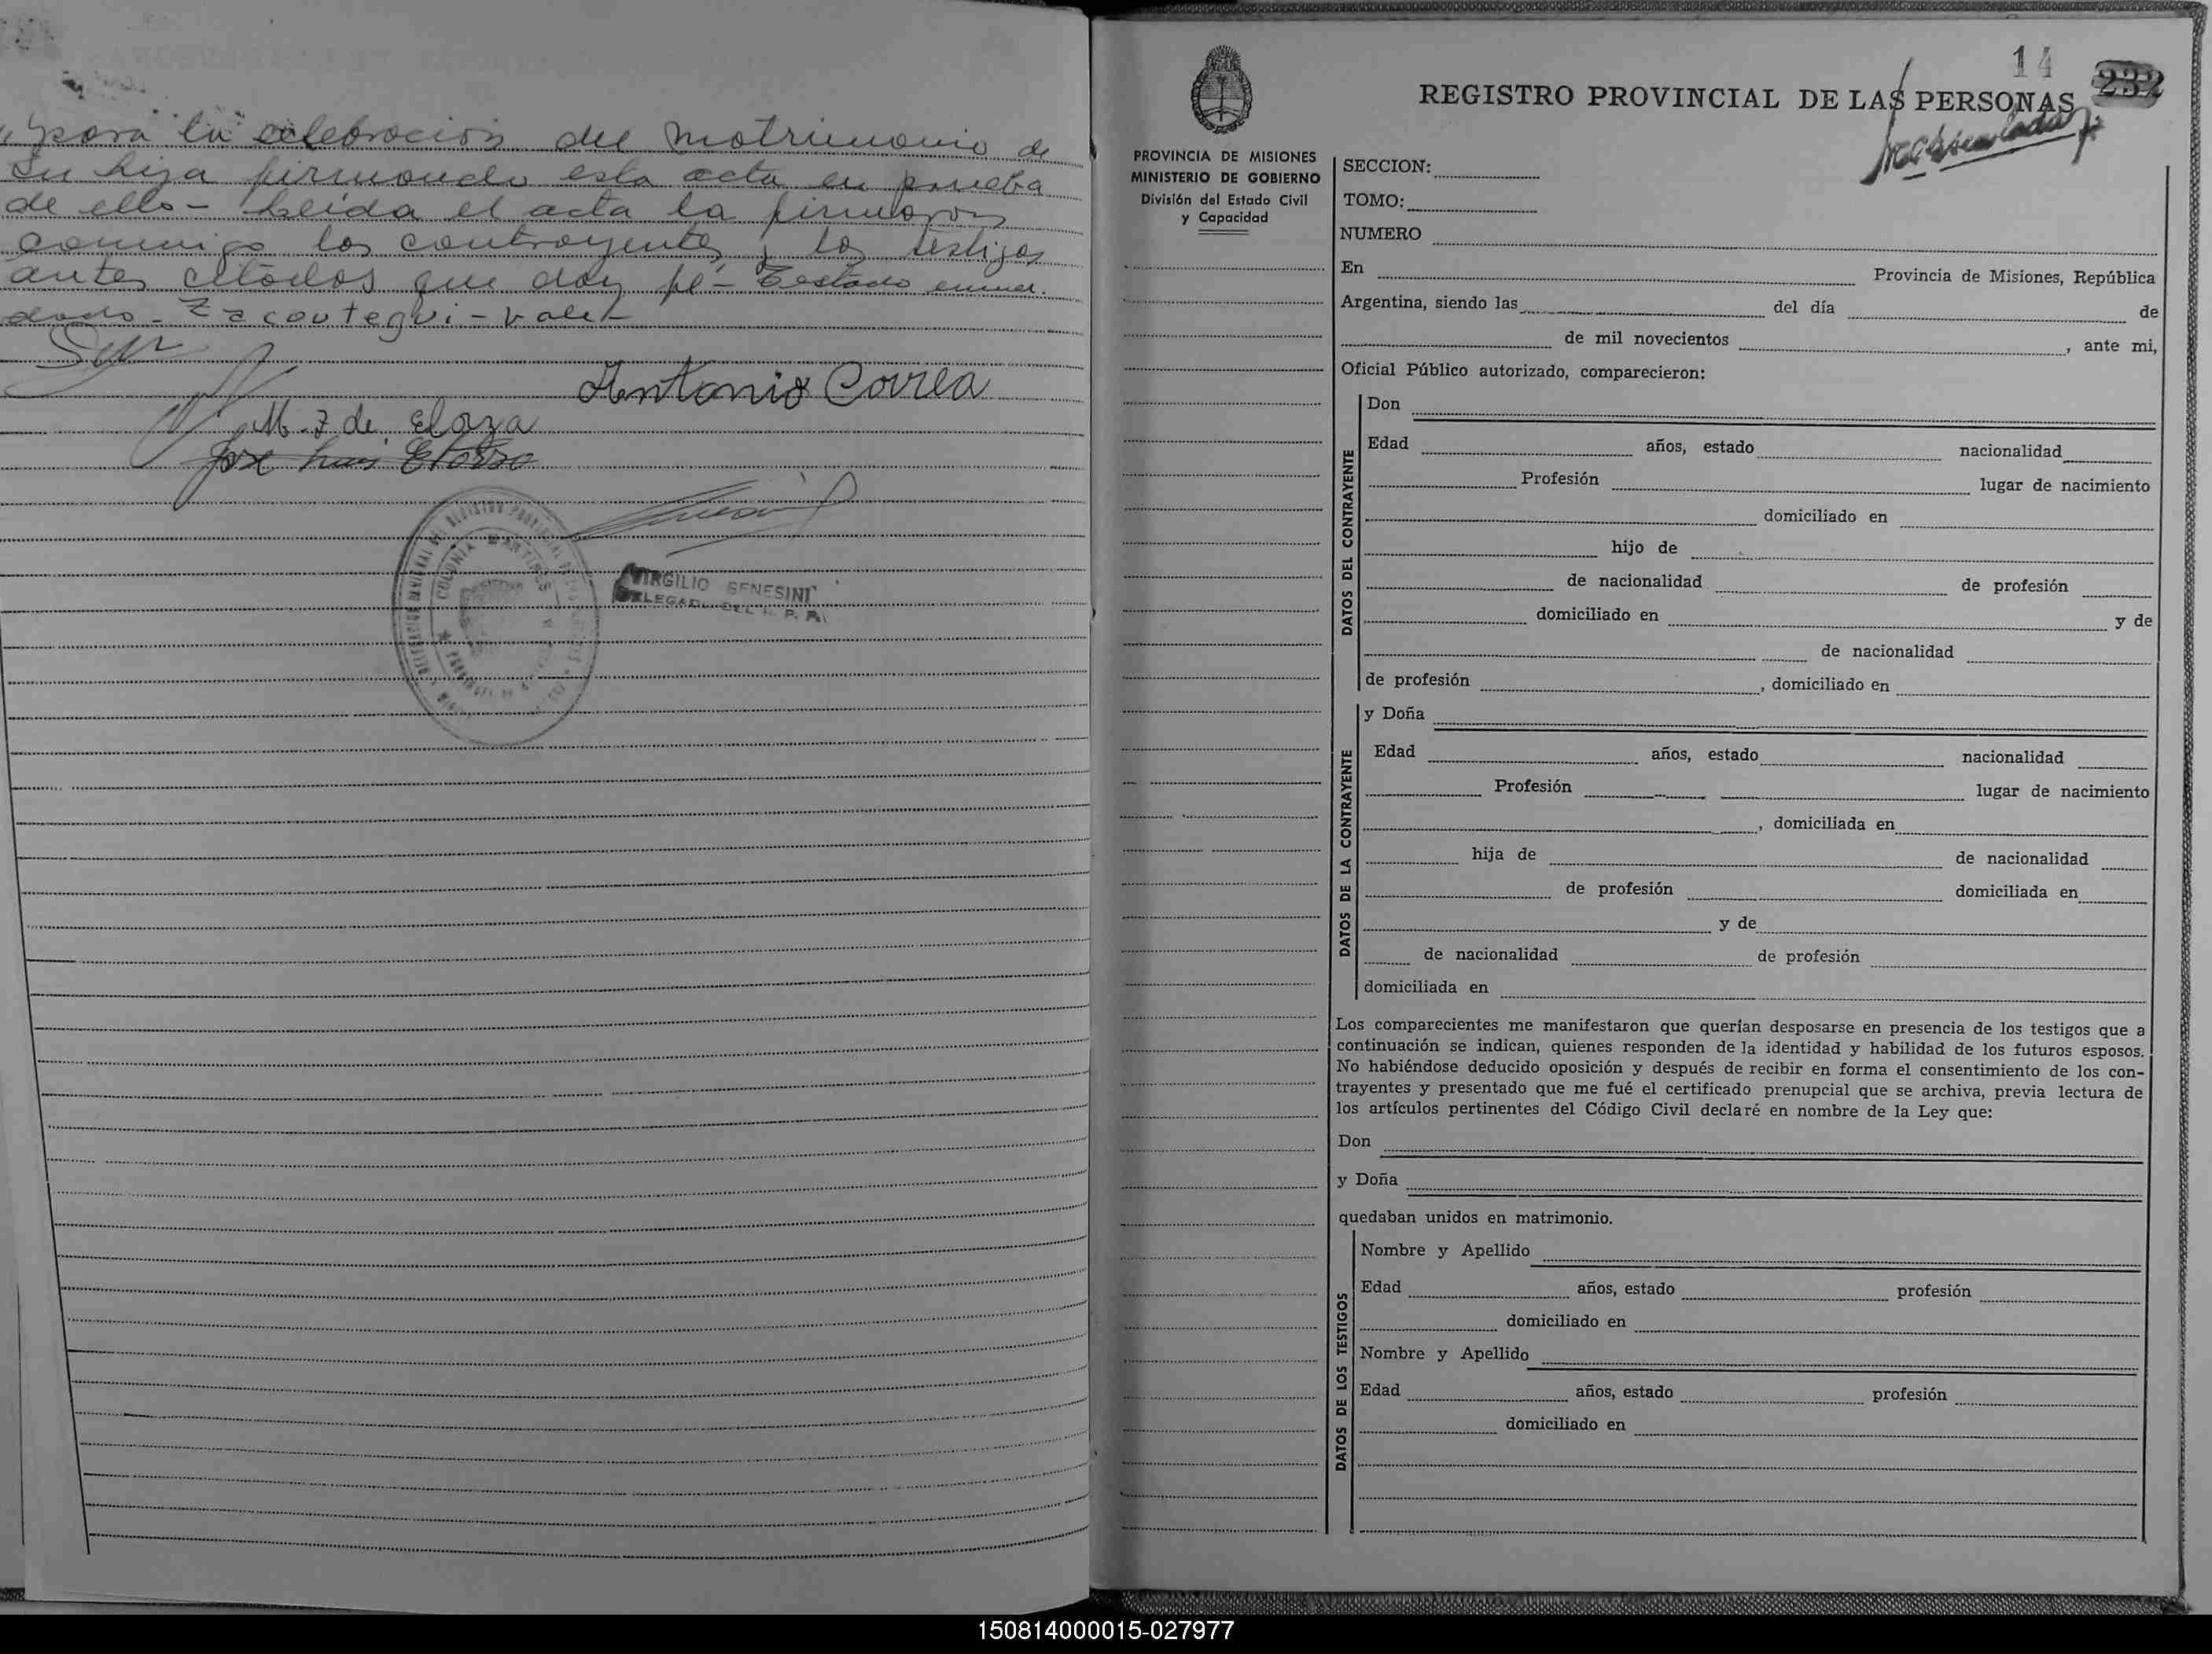 para la celebracion del matrimonio de
su hija firmando esta acta en prueba
de ello - Leida el acta la firmaron
conmigo los contrayentes y los testigos
antes citados que doy fé - Testado enmen-
dado - Zacoutegui - vale -
Antonio Correa
M. Z de Eloza
Jose Luis
COLONIA MARTIRES
VIRGILIO GENESINI
DELEGADO DEL R. P. P.
14
232
REGISTRO PROVINCIAL DE LAS PERSONAS
PROVINCIA DE MISIONES
MINISTERIO DE GOBIERNO
División del Estado Civil
y Capacidad
SECCION:
TOMO:
NUMERO
En Provincia de Misiones, República
Argentina, siendo las del día de
de mil novecientos , ante mi,
Oficial Público autorizado, comparecieron:
DATOS DEL CONTRAYENTE
Don
Edad años, estado nacionalidad
Profesión lugar de nacimiento
domiciliado en
hijo de
de nacionalidad de profesión
domiciliado en y de
de nacionalidad
de profesión , domiciliado en
DATOS DE LA CONTRAYENTE
y Doña
Edad años, estado nacionalidad
Profesión lugar de nacimiento
, domiciliada en
hija de de nacionalidad
de profesión domiciliada en
y de
de nacionalidad de profesión
domiciliada en
Los comparecientes me manifestaron que querían desposarse en presencia de los testigos que a
continuación se indican, quienes responden de la identidad y habilidad de los futuros esposos.
No habiéndose deducido oposición y después de recibir en forma el consentimiento de los con-
trayentes y presentado que me fué el certificado prenupcial que se archiva, previa lectura de
los artículos pertinentes del Código Civil declaré en nombre de la Ley que:
Don
y Doña
quedaban unidos en matrimonio.
DATOS DE LOS TESTIGOS
Nombre y Apellido
Edad años, estado profesión
domiciliado en
Nombre y Apellido
Edad años, estado profesión
domiciliado en
150814000015-027977